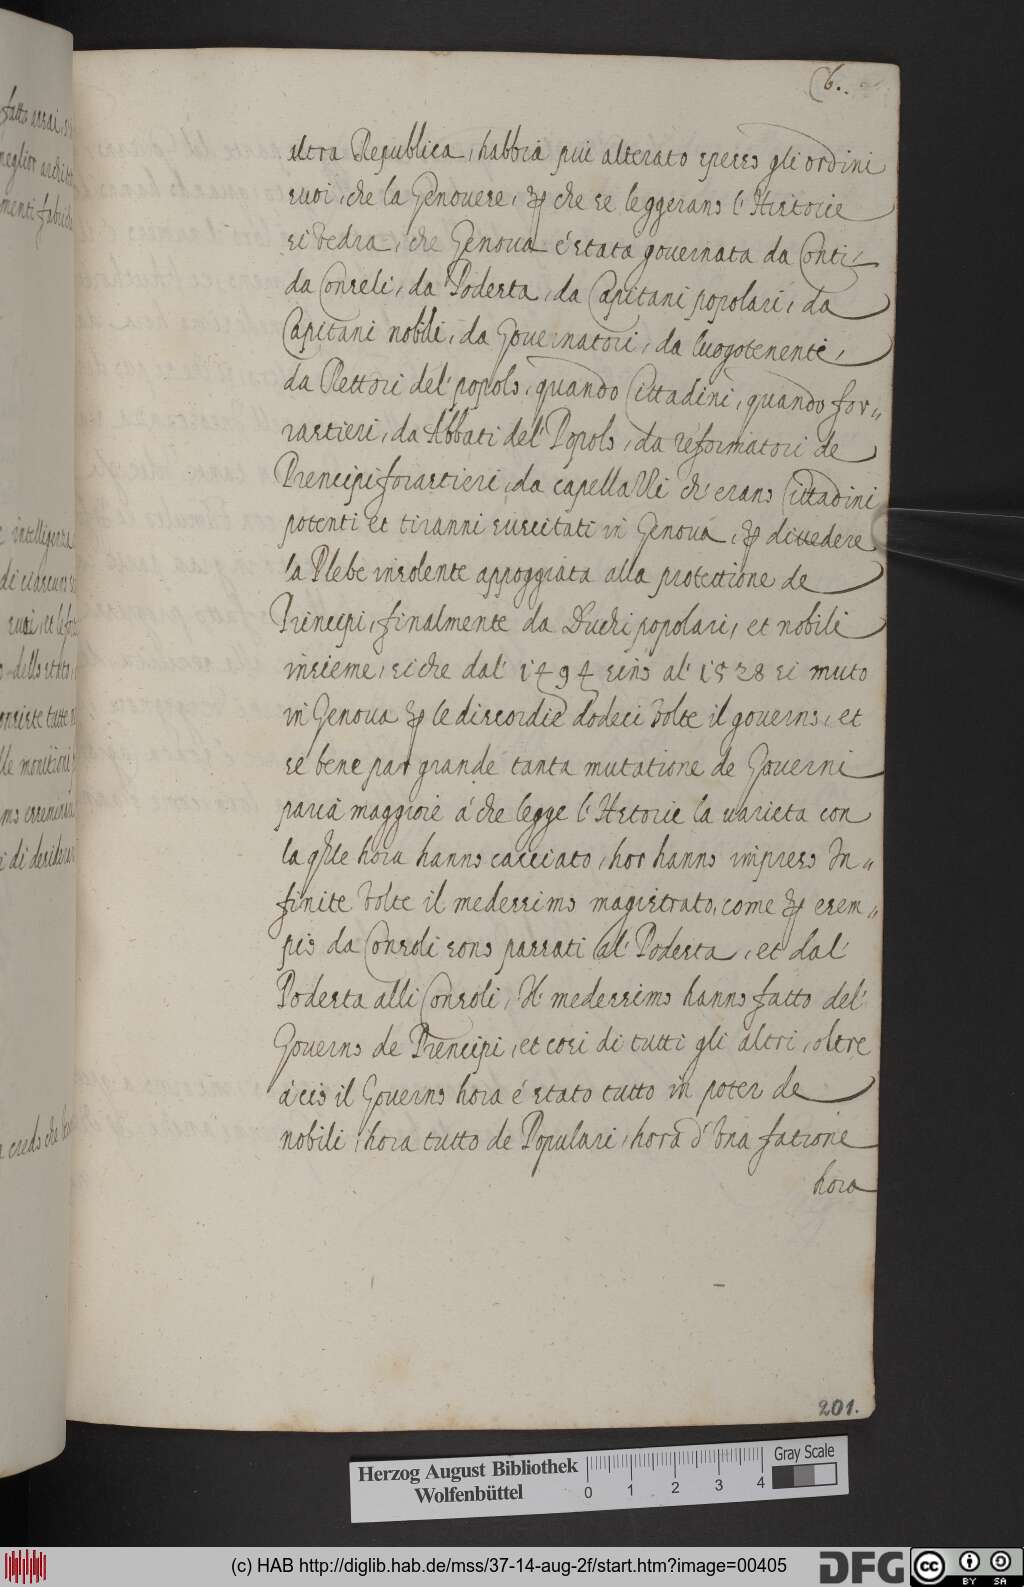 6..
altra Republica, habbia più alterato spesso gli ordini
suoi, che la Genouese, & che se leggerano l'Historie
si vedra, che Genoua é stata gouernata da Conti
da Conseli, da Podesta, da Capitani popolari, da
Capitani nobili, da Gouernatori, da luogotenenti,
da Rettori del' popolo, quando Cittadini, quando for„
rastieri, da Abbati del' Popolo, da reformatori de
Prencipi forastieri, da capellaVli ch' erano Cittadini
potenti et tiranni suscitati in Genoua, & di uedere
la Plebe insolente appoggiata alla protettione de
Principi, finalmente da Duchi popolari, et nobili
insieme, si che dal' 1494 sino al' 1528 si muto
in Genoua & le discordie dodeci volte il gouerno, et
se bene par grande tanta mutatione de Gouerni
paria maggiore á che legge l'Historie la uarieta con
la qle hora hanno cacciato, hor hanno impreso In„
finite volte il medessimo magistrato, come & esem„
pio da Consoli sono passati al' Podesta, et dal'
Podesta alli Consoli, Il medessimo hanno fatto del'
Gouerno de Prencipi, et cosi di tutti gli altri, oltre
á cio il Gouerno hora é stato tutto in poter de
nobili, hora tutto de Populari, hora d'vna fatione
hora
201.
fatto assai,
meglior archit
menti fabrich
intelligenza
di ciascuno
suoi, et le for
dello stato,
consiste tutte
lle monitioni
di desidera
credo che
Herzog August Bibliothek
Wolfenbüttel
0 1 2 3 4
Gray Scale
(c) HAB http://diglib.hab.de/mss/37-14-aug-2f/start.htm?image=00405
DFG
cc BY SA